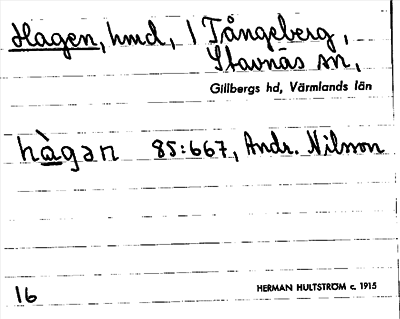 Hagen, hmd, 1 Tångeberg,
Stavnäs sn,
Gillbergs hd, Värmlands län
hàgan 85:667, Andr. Nilsson
16 HERMAN HULTSTRÖM c. 1915